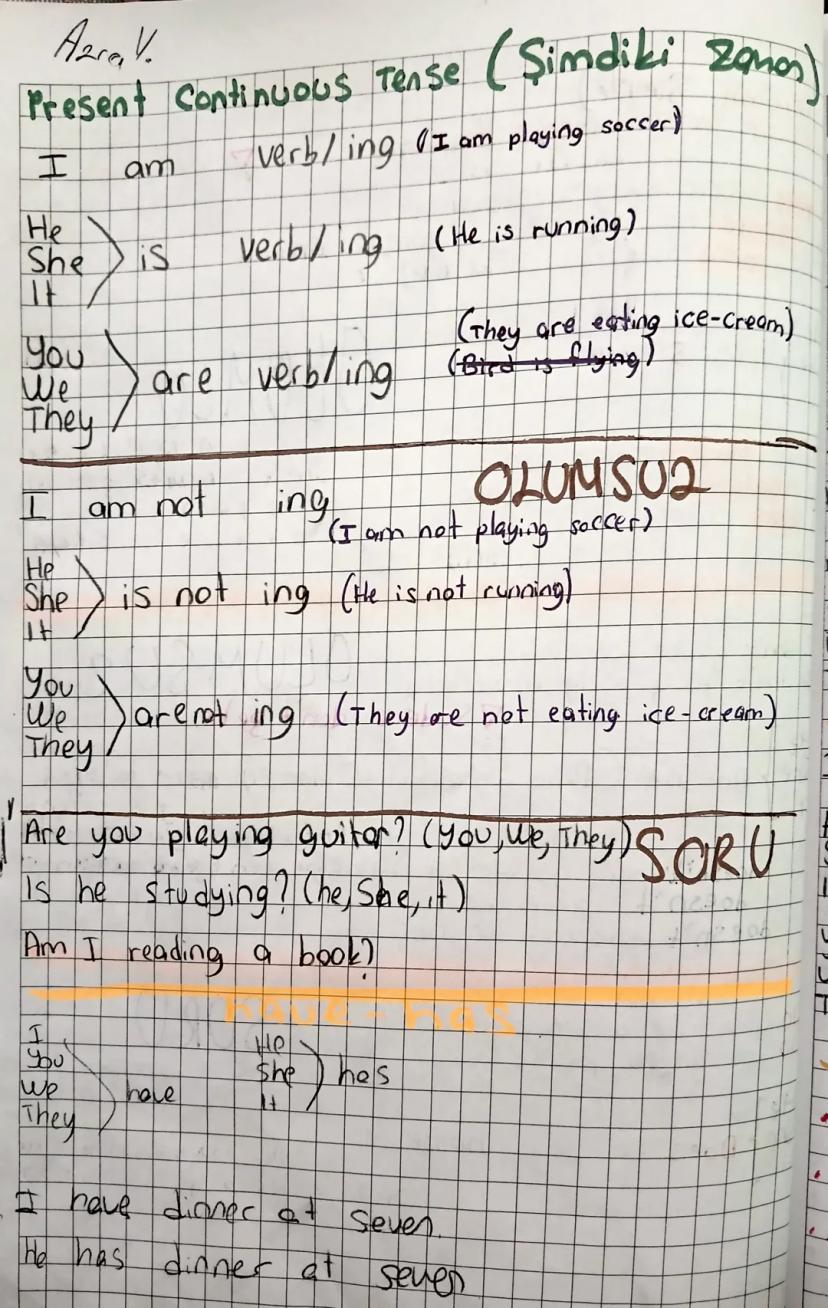 Azra V.
Present Continuous Tense (Şimdiki Zaman)
I am verb/ing (I am playing soccer)
He
She is verb/ing (He is running)
It
(They are eating ice-cream)
You (Bird is flying)
We are verb/ing
They
OLUMSUZ
I am not ing
(I am not playing soccer)
He
She is not ing (He is not running)
It
You
We are not ing (They are not eating ice-cream)
They
Are you playing guitar? (You, We, They) SORU
Is he studying? (he, She, it)
Am I reading a book?
have-has
I He
You She has
We have It
They
I have dinner at seven.
He has dinner at seven